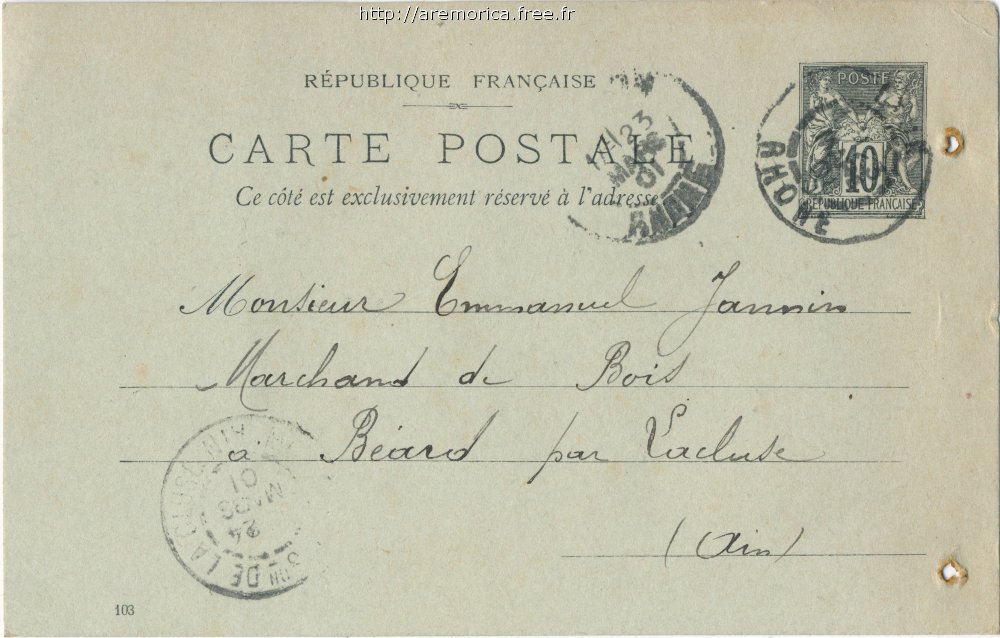 http://aremorica.free.fr
RÉPUBLIQUE FRANÇAISE
CARTE POSTALE
Ce côté est exclusivement réservé à l'adresse
POSTE
10
RÉPUBLIQUE FRANÇAISE
RHONE
23
MARS
01
RHONE
Monsieur Emmanuel Jannin
Marchand de Bois
a Béard par Lacluse
(Ain)
DE LA CLUSE
24
MARS
01
103